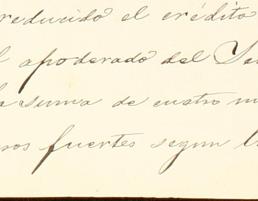 reducido el crédito
apoderado del
la suma de cuatro
fuertes segun